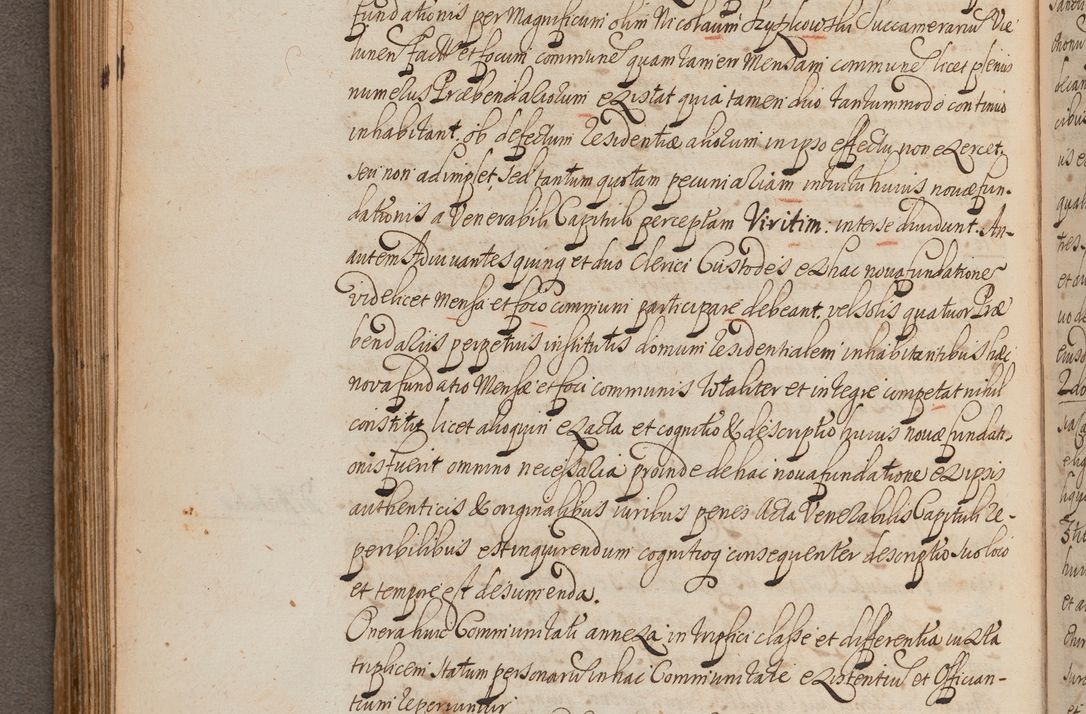 fundationis per Magnificum olim Nicolaum Szyszkowski Succamerariu Vie
lunen fact et focum commune quam tamen Mensam commune licet plenus
numerus Præbendariorum existat quia tamen duo tantummodo continuo
inhabitant, ob defectum residentiæ aliorum in ipso effectu non exercet,
seu non adimplet sed tantum quotam pecuniariam intuitu huius novæ fun-
dationis a Venerabili Capitulo perceptam Viritim: inter se dividunt. An-
autem Adiuvantes quinq et duo Clerici Custodes ex hac nova fundatione
videlicet Mensa et foco communi participare debeant, vel solis quatuor Præ
bendariis perpetuis institutis domum residentialem inhabitantibus hæc
nova fundatio Mensæ et foci communis totaliter et integre competat nihil
constitit, licet alioquin exacta et cognitio & descriptio huius novæ fundati,
onis fuerit omnino necessaria proinde de hac nova fundatione ex ipsis
authenticis & originalibus iuribus penes Acta Venerabilis Capituli re-
peribilibus est inquirendum cognitioq consequenter descriptio suo loco
et tempore est desumenda.
Onera huic Communitati annexa in triplici classe et differentia iuxta
triplicem statum personaru in hac Communitate existentiu et Offician-
tium reperiuntur